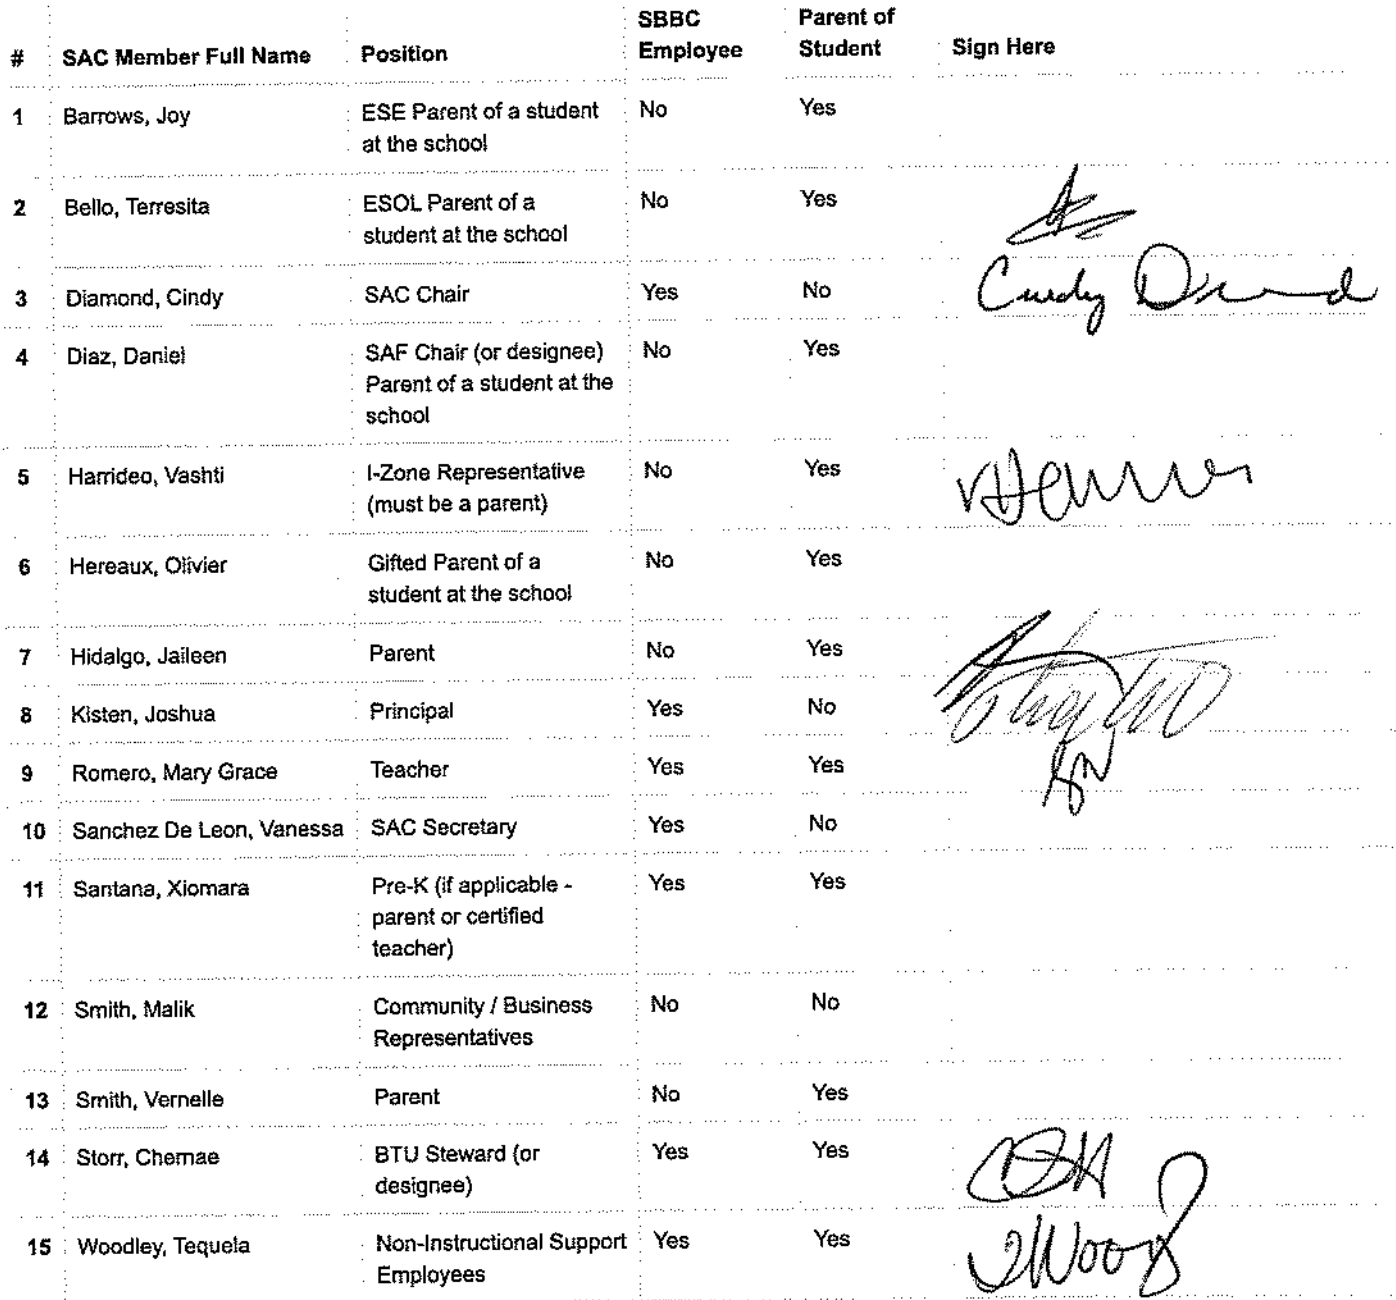 # SAC Member Full Name Position SBBC Employee Parent of Student Sign Here
1 Barrows, Joy ESE Parent of a student at the school No Yes
2 Bello, Terresita ESOL Parent of a student at the school No Yes
3 Diamond, Cindy SAC Chair Yes No Cindy Diamond
4 Diaz, Daniel SAF Chair (or designee) Parent of a student at the school No Yes
5 Harrideo, Vashti I-Zone Representative (must be a parent) No Yes
6 Hereaux, Olivier Gifted Parent of a student at the school No Yes
7 Hidalgo, Jaileen Parent No Yes
8 Kisten, Joshua Principal Yes No
9 Romero, Mary Grace Teacher Yes Yes
10 Sanchez De Leon, Vanessa SAC Secretary Yes No
11 Santana, Xiomara Pre-K (if applicable - parent or certified teacher) Yes Yes
12 Smith, Malik Community / Business Representatives No No
13 Smith, Vernelle Parent No Yes
14 Storr, Chemae BTU Steward (or designee) Yes Yes
15 Woodley, Tequela Non-Instructional Support Employees Yes Yes